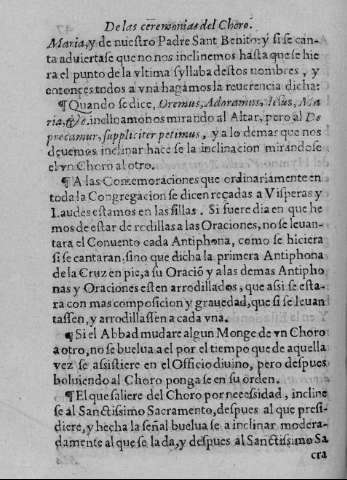 De las ceremonias del Choro.
Maria, y de nuestro Padre Sant Benito: y si se can-
ta aduiertase que no nos inclinemos hasta que se hie
ra el punto de la vltima syllaba destos nombres, y
entonces todos a vna hagamos la reuerencia dicha:
¶ Quando se dice, Oremus, Adoramus, Iesus, Ma
ria, &c. inclinamonos mirando al Altar, pero al De
precamur, suppliciter petimus, y a lo demas que nos
deuemos inclinar hace se la inclinacion mirandose
el vn Choro al otro.
¶ A las Comemoraciones que ordinariamente en
toda la Congregacion se dicen reçadas a Visperas y
Laudes estamos en las sillas. Si fuere dia en que he
mos de estar de rodillas a las Oraciones, no se leuan-
tara el Conuento cada Antiphona, como se hiciera
si se cantaran, sino que dicha la primera Antiphona
de la Cruz en pie, a su Oració y a las demas Antipho
nas y Oraciones esten arrodillados, que assi se esta-
ra con mas composicion y grauedad, que si se leuan
tassen, y arrodillassen a cada vna.
¶ Si el Abbad mudare algun Monge de vn Choro
a otro, no se buelua a el por el tiempo que de aquella
vez se assistiere en el Officio diuino, pero despues
boluiendo al Choro ponga se en su orden.
¶ El que saliere del Choro por necessidad, incline
se al Sanctissimo Sacramento, despues al que presi-
diere, y hecha la señal buelua se a inclinar modera-
damente al que se la da, y despues al Sanctissimo Sa
cra